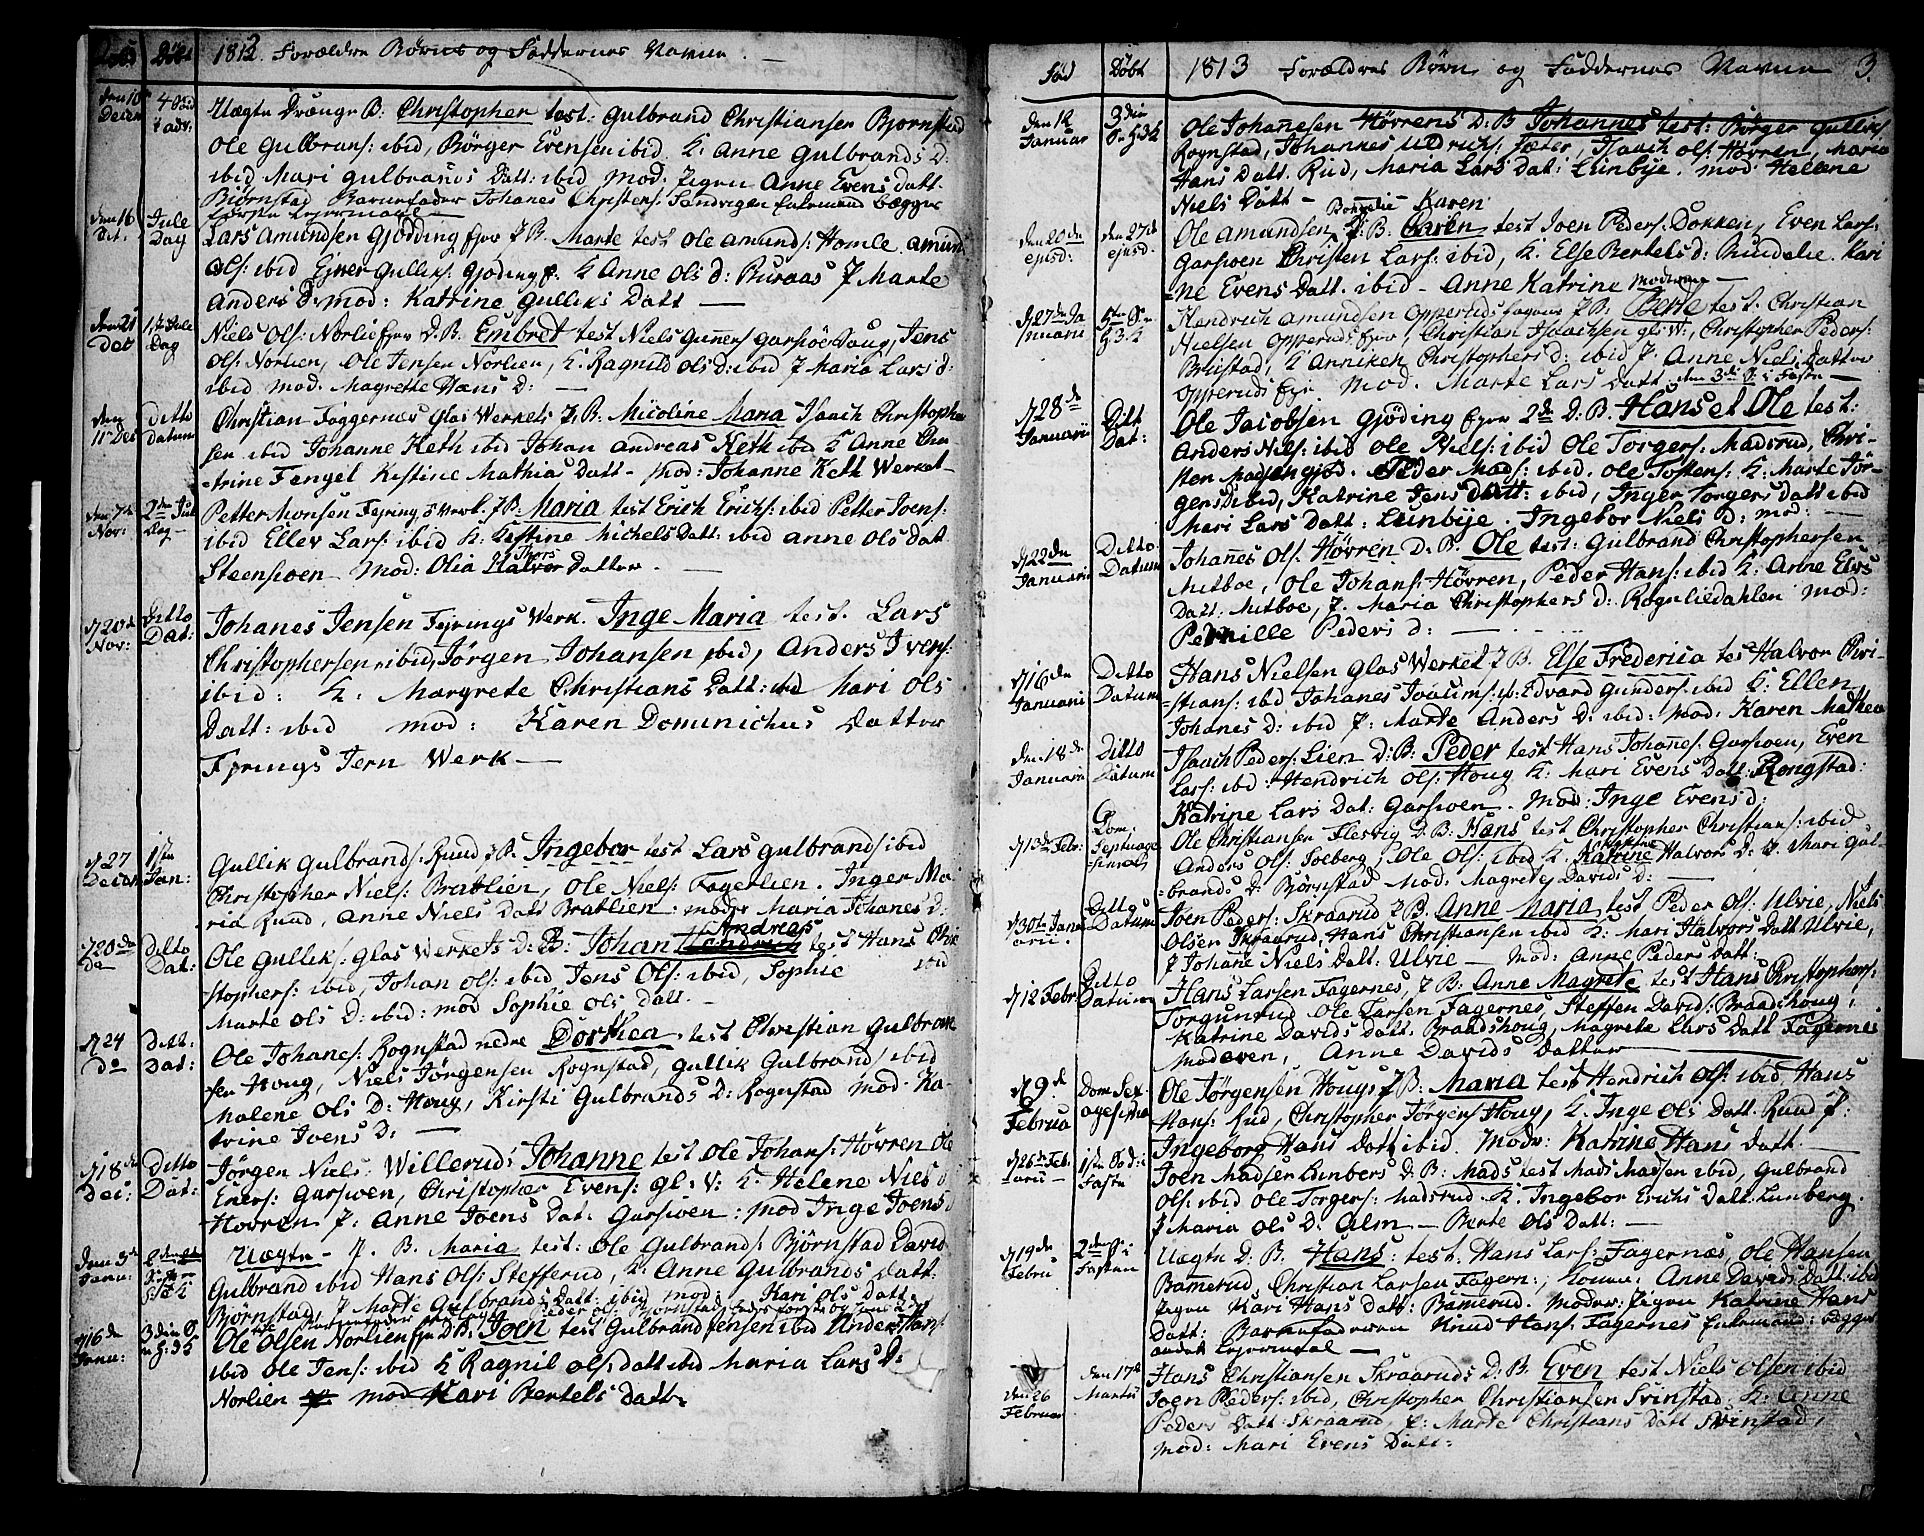 Døbt 1812. Forældre Børns og Faddernes Navne.
den 10de Decem 4 Sønd i adv: Uægte Drænge B: Christopher test: Gulbrand Christiansen Bjornstad
Ole Gulbrans: ibid, Børger Evensen ibid K: Anne Gulbrands D:
ibid Mari Gulbrands Datt: ibid mod: Pigen Anne Evens Datt.
Bjørnstad Barnefader Johanes Christens: Sandvigen Enkemand begges
første Lejermaal
den 16 Det. Jule Dag Lars Amundsen Gjødding Ejer P B. Marte test Ole Amunds: Homle Amund
Ols: ibid Ejner Gulliks: Gjøding K Anne Ols D: Buraas P Marte
Anders D: mod: Katrine Gulliks Datt
den 21 Det 1st Jule Dag Niels Ols: Norlie D. B. Embret test Niels Guners Garsjøe, Jens
Ols: Norlien, Ole Jensen Norlien, K. Ragnild Ols D: ibid P Maria Lars D:
ibid mod. Magrette Hans D:
den 11 Dec ditto datum Christian Faggernæs Glas Werkets P B: Nicoline Maria Isaach Christopher
sen ibid Johanne Keth ibid Johan Andreas Keth ibid K Anne Cha
trine Fengel Kirstine Mathias Datt mod: Johanne Keth Werket
den 7de Nov: 2den Jul Dag Petter Monsen Fejring s Werk. P B: Maria test Erich Erichs: ibid Petter Joens:
ibid Ellev Lars: ibid K. Kirstine Michels Datt: ibid Anne Ols Datt
Steensven Mod: Olia Halvor Datter
Thors
d 20de Nov: Ditto Dat: Johanes Jensen Fejrings Werk. Inge Maria test. Lars
Christophersen ibid, Jørgen Johansen ibid, Anders Ivers:
ibid: K: Margrete Christians Datt: ibid Mari Ols
Datt: ibid mod: Karen Dominichus Datter
Fejrings Jern Werk
d 27 Decem 1ste Jan: Gullik Gulbrands: Ruud P B. Ingebor test Lars Gulbrands ibid
Christopher Niels: Bratlien, Ole Niels: Fagerlien. Inger Ma
ria Ruud, Anne Niels Datt Bratlien: moder Maria Johanes D:
d 20de De ditto Dat: Ole Gulliks: Glas Werkets D: B: Johan Hendrich test Hans Chri
Andreas
stophers: ibid, Johan Ols: ibid Jens Ols: ibid, Sophie ibid
Marte Ols D: ibid: mod Sophie Ols Datt.
d 24 De ditt: Dat: Ole Johanes: Rognstad nedre Dorthea test Christian Gulbran
sen Houg, Niels Jørgensen Rognstad, Gullik Gulbrands ibid
Malene Ols D: Houg, Kirsti Gulbrands D: Rognstad mod. Ka
trine Joens D:
d 18de Dec: Ditto Dat: Jørgen Niels: Willeruds Johanne test Ole Johans: Høvren Ole
Eners: Garsven, Christopher Evens: gl: V: K. Helene Niels D
Hovren P: Anne Joens Dat: Garsven: mod Inge Joens D
den 3de Janu: Uægte P. B. Maria test: Ole Gulbrands: Bjørnstad David
Gulbrand ibid Hans Ols: Stefferud, K: Anne Gulbrands Datt:
Bjørnstad, P Marte Gulbrands Datt: ibid mod: Kari Ols Datt
d 16de Janu: 3die S e H. 3 K Ole Olsen Norlien D B. Joen test Gulbrand Jensen ibid Anders Lars:
ibid Ole Jens: ibid K Ragnil Ols: Datt ibid Maria Lars D:
Norlien mod Kari Bertels Datt:
Fød Døbt 1813 Forældres Børn og Faddernes Navne 3
den 12 Januar 3die S. e H. 3 K Ole Johannesen Høvrens D: B Johannes test: Børger Gulliks
Rognstad, Johannes Udrichs: Sæter, Isaach Ols: Høvren, Maria
Hans Datt. Rud, Maria Lars Dat: Lunbye. mod Helene
Niels Datt
den 20de ejusd: den 27de ejusd. Ole Amundsen P. B. Karen test Joen Peders: Dokken, Even Lars:
Karen
Garsven Christen Lars: ibid, K. Else Bertels D: Rundelie. Kari
ne Evens Datt. ibid Anne Katrine moderen
d 27de Ja nuarii 5te S e H 3 K Hendrich Amundsen Opperuds P B. Berte test. Christian
Nielsen Opperuds Ejer, Christian Isaachsen gl: W:, Christopher Peders:
Bustad, K Anniken Christophers D: ibid P. Anne Niels Datter
Opperuds Ejer mod. Marte Lars Datt den 3di S: i Faste
d 28de Januarii Ditt Dat: Ole Jacobsen Gjøding Ejer 2de D. B. Hans et Ole test:
Anders Niels: ibid Ole Niels: ibid Ole Torgers: Madsrud, Chri-
sten Madsen Gjød. Peder Mads: ibid. Ole Tostens: K: Marte Jør-
gens D ibid, Katrine Jens Datt: ibid, Inger Torgers Datt ibid
Mari Lars Datt: Lunbye. Ingebor Niels D: mod:
d 22de Januarii Ditto Datum Johannes Ols: Høvren D. B. Ole test: Gulbrand Christophersen
Mitboe, Ole Johans: Høvren, Peder Hans: ibid K: Anne Elvs
Datt. Mitboe, P. Maria Christophers D: Rognliedahlen mod:
Pernille Peders D:
d 16de Januarii Ditto Datum Hans Nielsen Glas Werket P B. Else Frederica tes Halvor Chri-
stians: ibid Johanes Joacims: ib: Edvard Gunders: ibid K: Ellen
Johanes D: ibid P. Marte Anders D: ibid: mod: Karen Mathea
den 18de Januarii Ditto Datum Isaach Peders: Lien D: B: Peder test Hans Johannes: Garsven, Even
Lars: ibid: Hendrich Ols: Houg K: Mari Evens Datt: Rongstad:
Katrine Lars Dat: Garsven. Mod: Inge Evens D:
d 13de Febr: Dom: Septuage simal: Ole Christiansen Flesvig D. B: Hans test Christopher Christians: ibid
Anders Ols: Soeberg, Ole Ols: ibid K. Katrine Halvors D: P. Mari Gul-
brands D: Bjørnstad Mod: Magrete Davids D:
d 30te Janu arii. Ditto Datum Joen Peders: Skraarud P B: Anne Maria test Peder Ols: Ulvie, Niels
Olsen Skraarud, Hans Christiansen ibid K: Mari Halvors Datt Ulvie,
P Johanne Niels Datt. Ulvie Mod: Anne Peders Datt:
d 12 Febr: Ditto Datum Hans Larsen Fagernes, P B: Anne Magrete test Hans Christophers:
Torgunrud Ole Larsen Fagernes, Steffen Davids: Braadshoug,
Katrine Davids Datt. Braadshoug, Magrete Lars Datt Fagernes
Moderen, Anne Davids Datter
d 9de Februa Dom Sex agesima Ole Jørgensen Hougs P B: Maria test Hendrich Ols: ibid Hans
Hans: Rud, Christopher Jørgens: Houg, K. Inge Ols Datt. Ruud P:
Ingeborg Hans Datt ibid. Modr: Katrine Hans Datt
d 26de Feb. ruarii 1ste S i Faste Joen Madsen Lunbers D: B: Mads test Mads Madsen ibid, Gulbrand
Ols: ibid Ole Torgers: Madsrud K. Ingebor Erichs Datt: Lunberg.
P Maria Ols D: Alm Berte Ols Datt:
d 19de Febru 2den S i Fasten Uægte D. B. Hans: test. Hans Lars: Fagernæs, Ole Hansen
Bamerud, Christian Larsen Fagern:, Konen: Anne Davids Datt: ibid
Pigen Kari Hans Datt: Bamerud. Moder: Pigen Katrine Hans
Datt: Barnefaderen Knud Hans: Fagernes Enkemand: begges
andet Lejermaal
den 26 Februar den 17de Martii Hans Christiansen Skraaruds D: B. Even test Niels Olsen ibid
Joen Peders: ibid, Christopher Christiansen Svinstad K: Anne
Peders Datt: Skraarud, P: Marte Christians Datt Svinstad,
Mod: Mari Evens Datt: